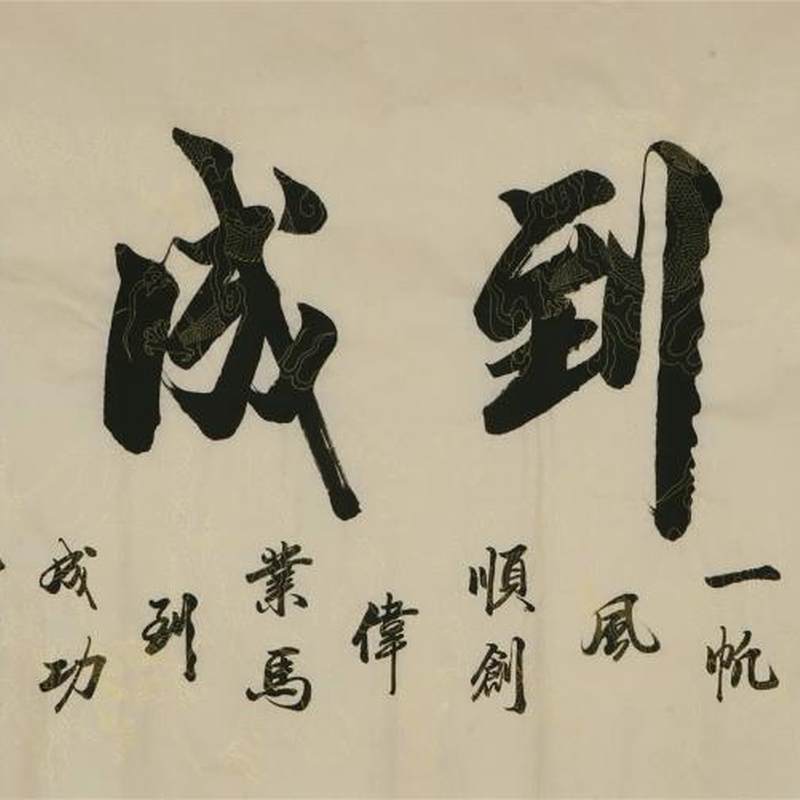 到成
一帆
風
順創
偉
業馬
到
成功